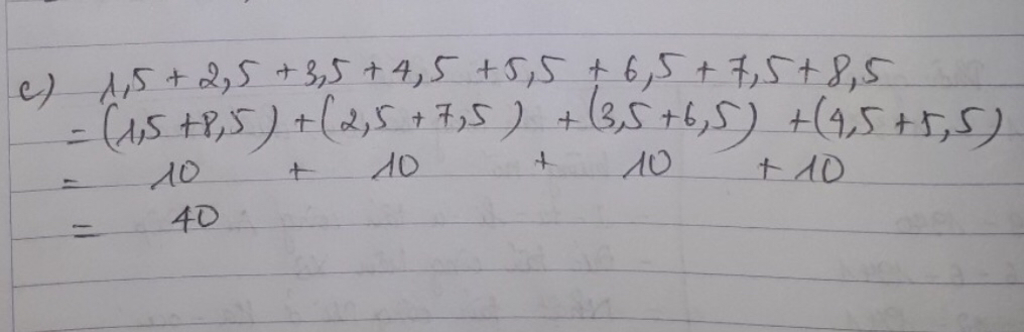 c) 1,5 + 2,5 + 3,5 + 4,5 + 5,5 + 6,5 + 7,5 + 8,5
= (1,5 + 8,5) + (2,5 + 7,5) + (3,5 + 6,5) + (4,5 + 5,5)
= 10 + 10 + 10 + 10
= 40